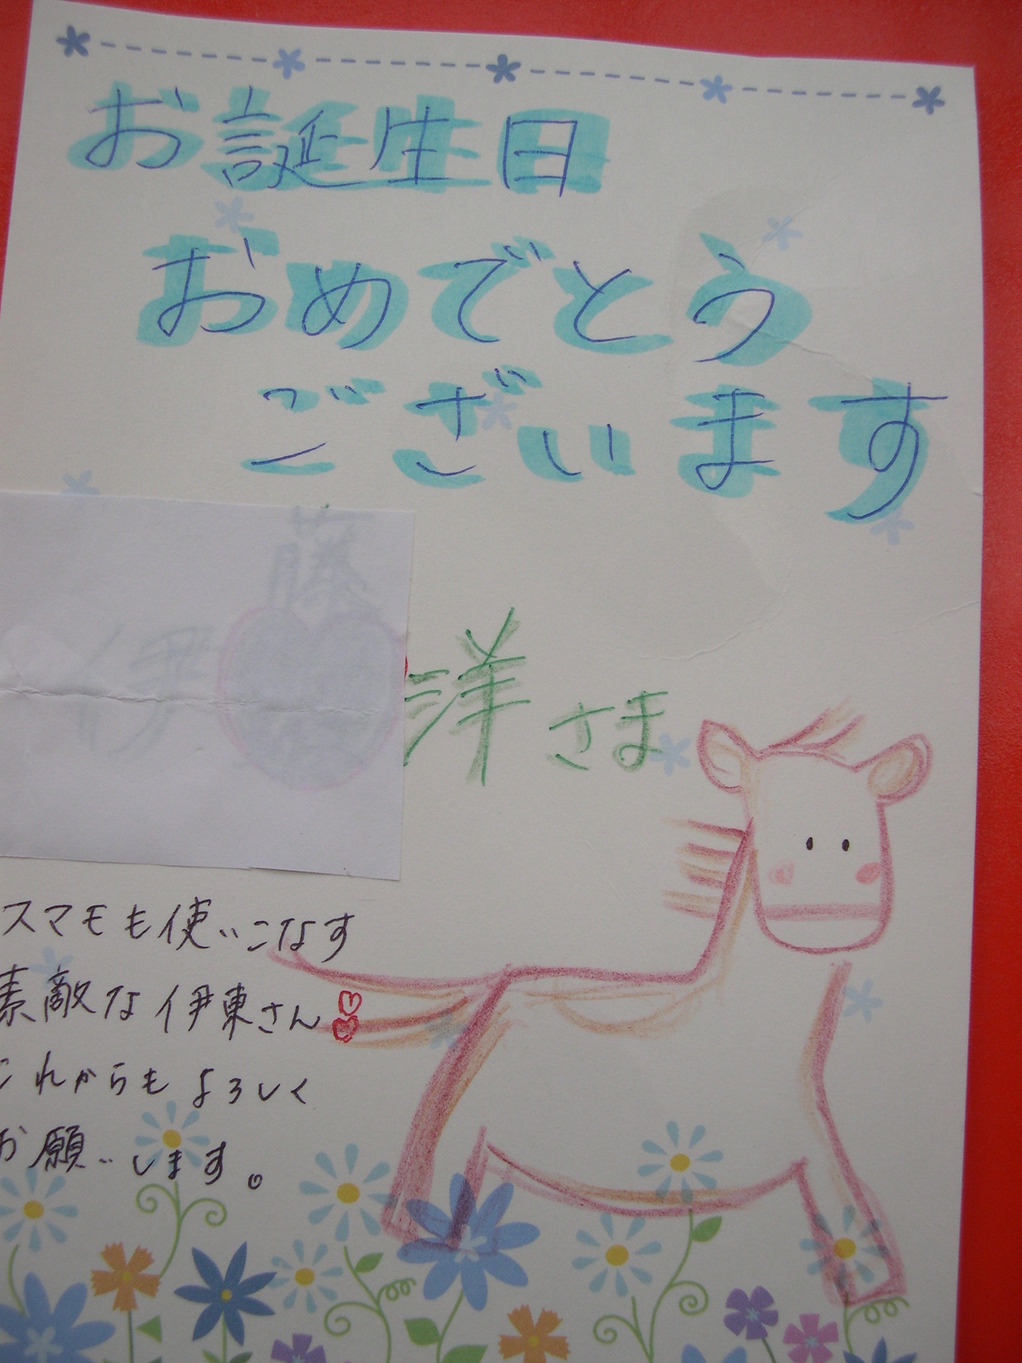 お誕生日
おめでとう
ございます
伊藤 洋さま
スマモも使いこなす
素敵な伊東さん
これからもよろしく
お願いします。